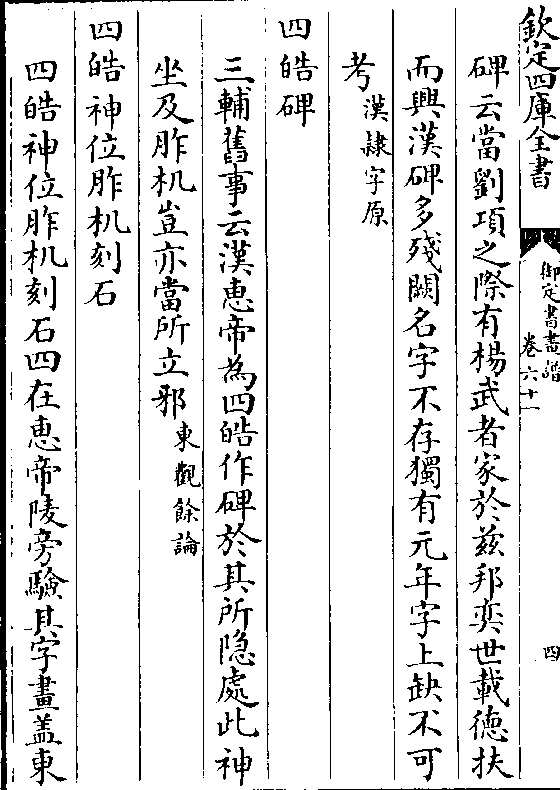 欽定四庫全書
御定書畫譜
卷六十一
四
碑云當劉項之際有楊武者家於兹邦奕世載德扶
而興漢碑多殘闕名字不存獨有元年字上缺不可
考漢隸字原
四皓碑
三輔舊事云漢惠帝為四皓作碑於其所隐處此神
坐及胙机豈亦當所立邪東觀餘論
四皓神位胙机刻石
四皓神位胙机刻石四在惠帝陵旁驗其字畫盖東